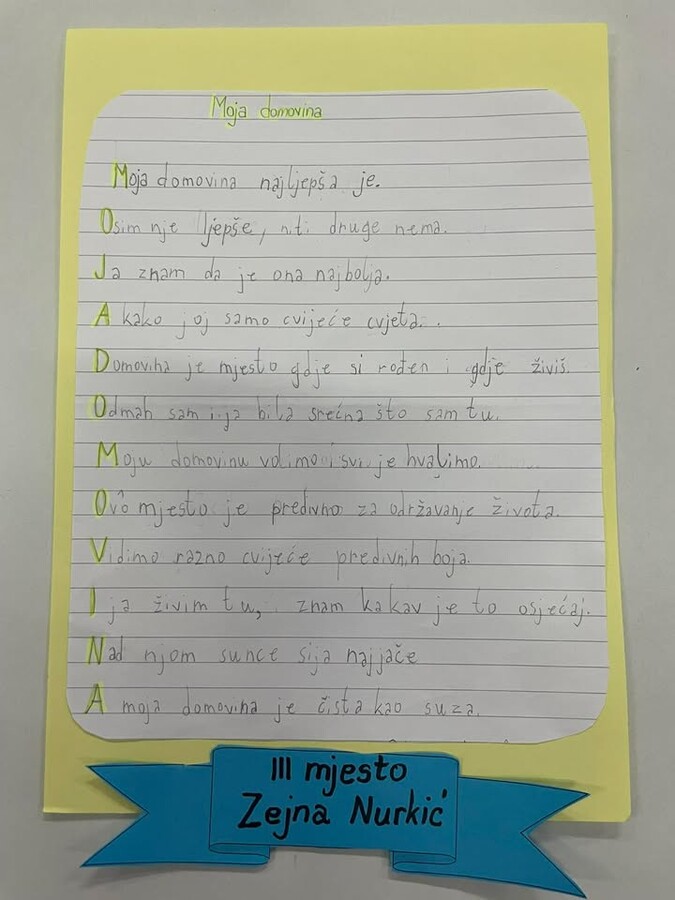 Moja domovina
Moja domovina najljepša je.
Osim nje ljepše, niti druge nema.
Ja znam da je ona najbolja.
A kako joj samo cvijeće cvjeta..
Domovina je mjesto gdje si rođen i gdje živiš.
Odmah sam i ja bila srećna što sam tu.
Moju domovinu volimo i svi je hvalimo.
Ovo mjesto je predivno za održavanje života.
Vidimo razno cvijeće predivnih boja.
I ja živim tu, znam kakav je to osjećaj.
Nad njom sunce sija najjače
A moja domovina je čista kao suza.
III mjesto
Zejna Nurkić